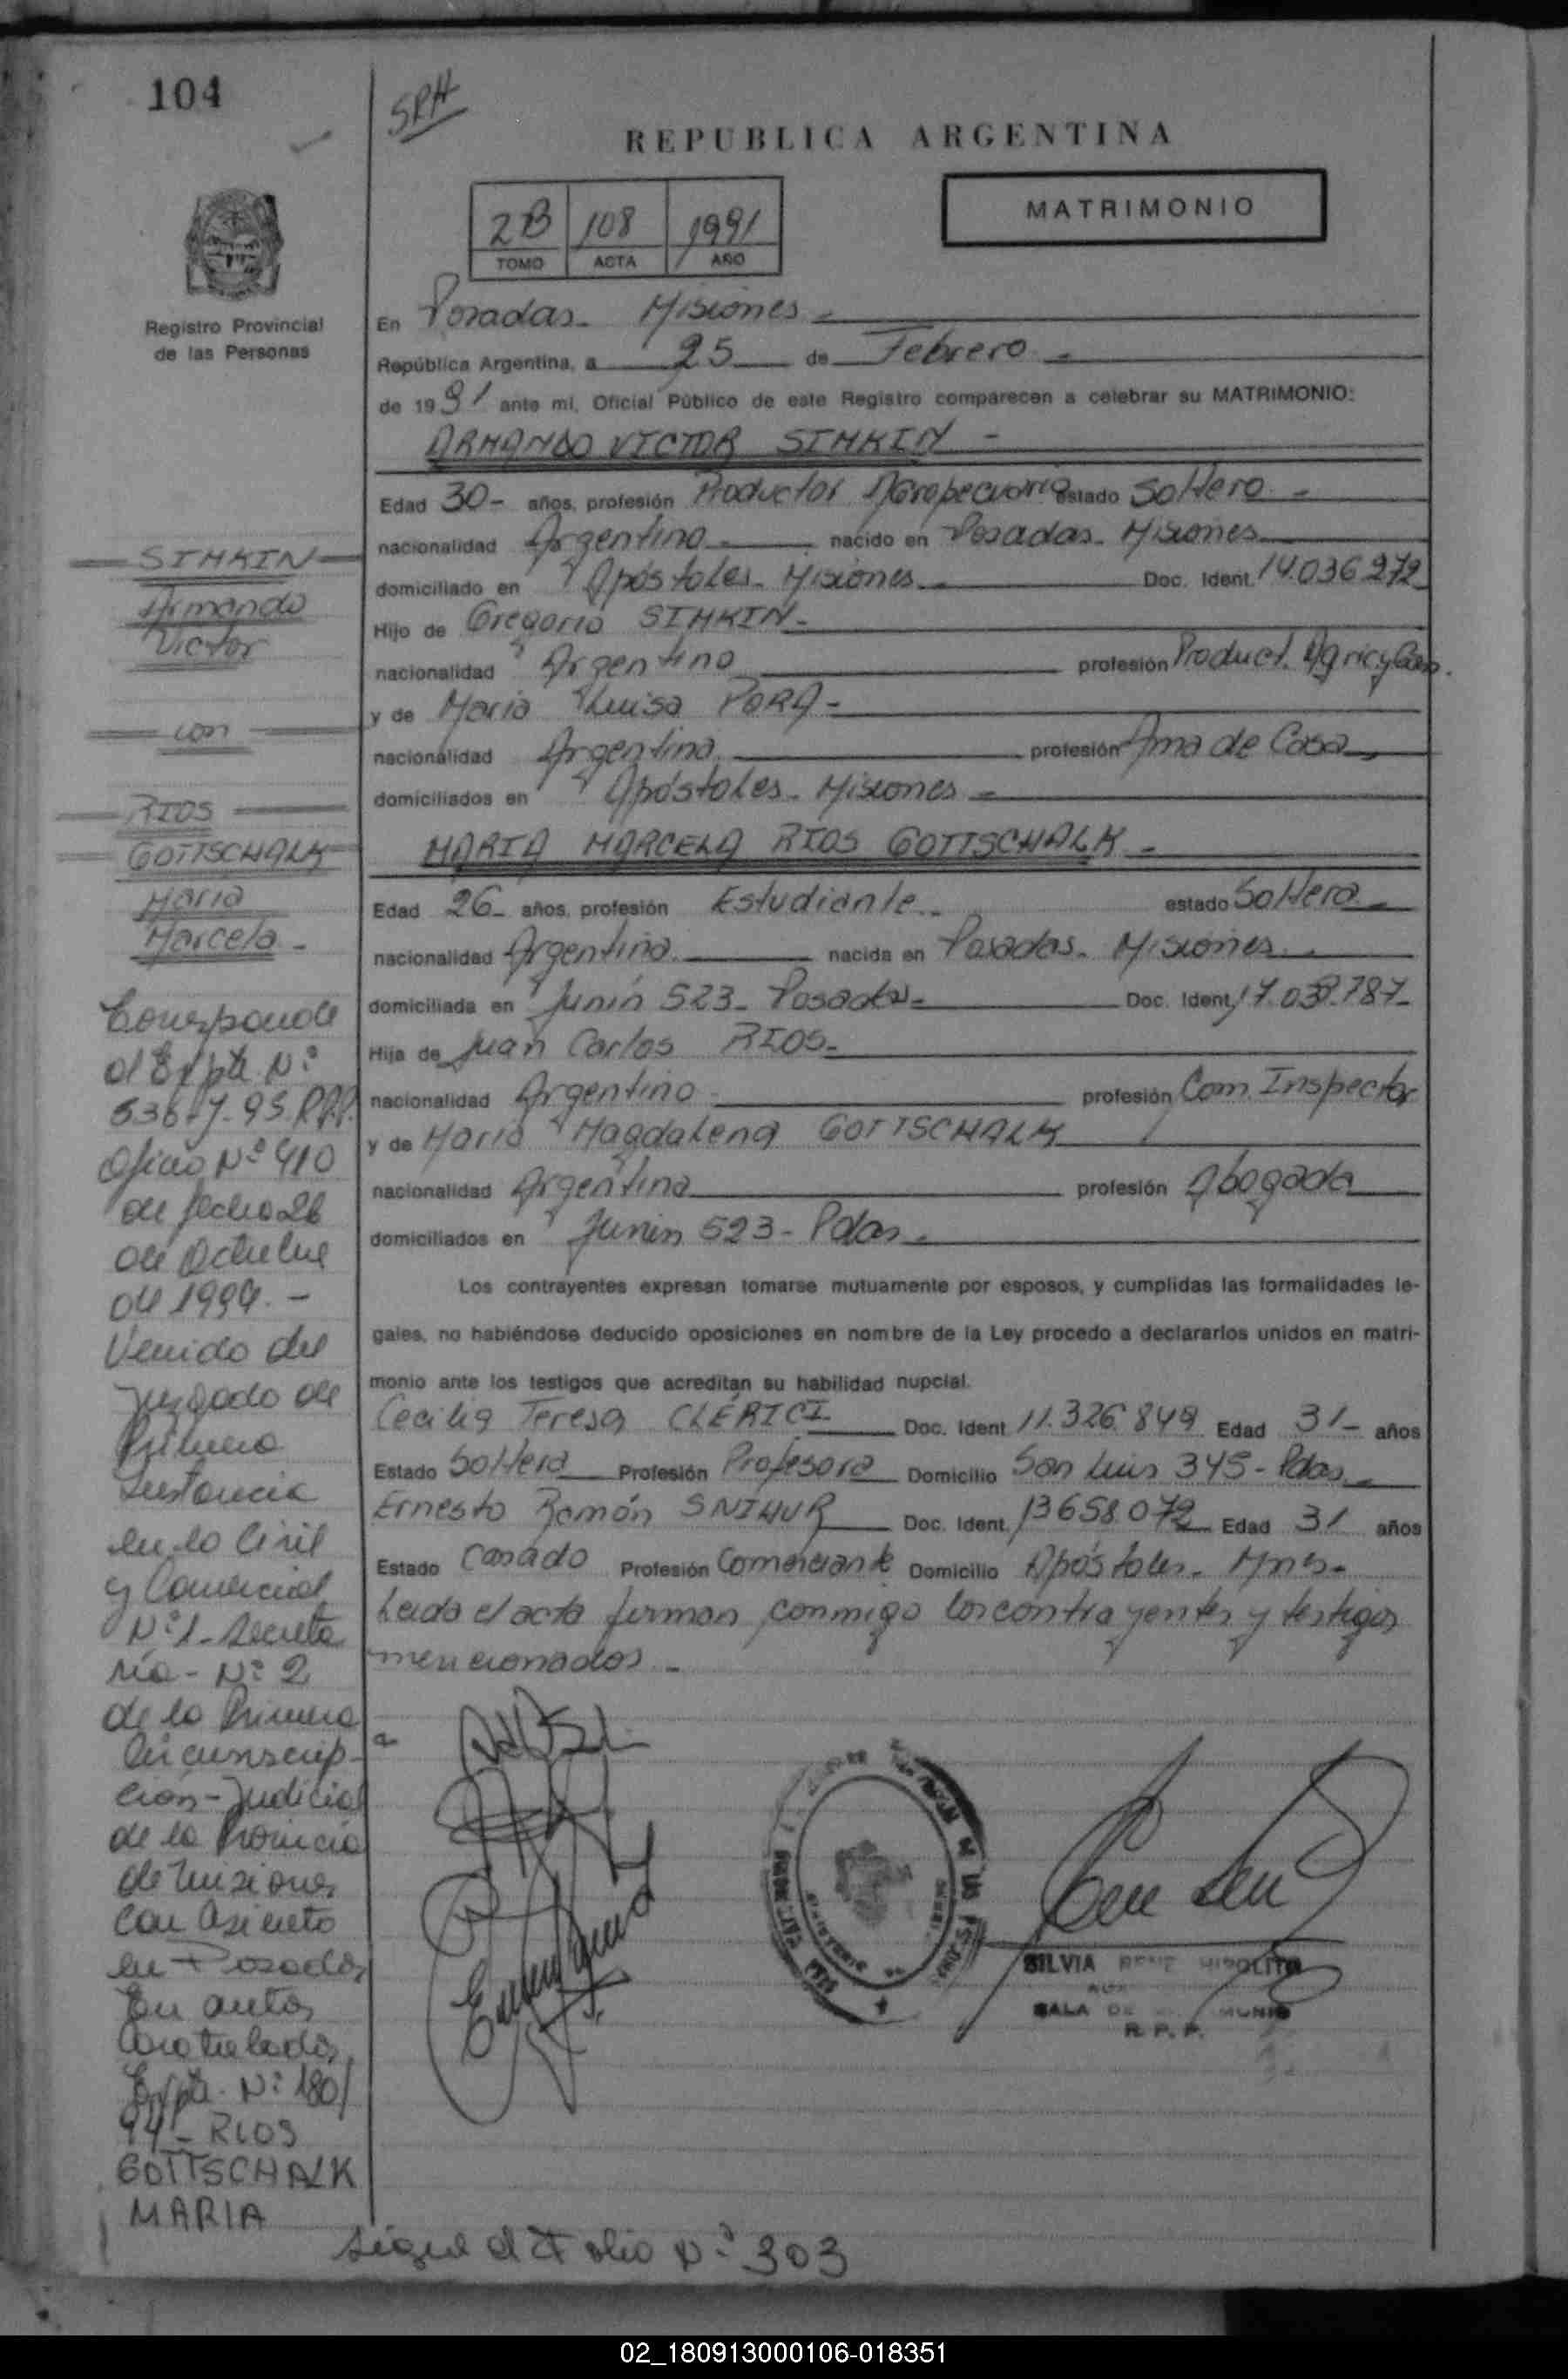 104
SRH
REPUBLICA ARGENTINA
2B 108 1991
TOMO ACTA AÑO
MATRIMONIO
Registro Provincial
de las Personas
En Posadas - Misiones -
República Argentina, a 25 de Febrero -
de 1991 ante mí, Oficial Público de este Registro comparecen a celebrar su MATRIMONIO:
ARMANDO VICTOR SIMKIN -
Edad 30 - años, profesión Productor Agropecuario estado Soltero -
nacionalidad Argentino - nacido en Posadas - Misiones
domiciliado en Apóstoles - Misiones - Doc. Ident. 14.036.272
Hijo de Gregorio SIMKIN -
nacionalidad Argentino profesión Product. Agric y Gan.
y de María Luisa PORA -
nacionalidad Argentina profesión Ama de Casa
domiciliados en Apóstoles - Misiones -
MARIA MARCELA RIOS GOTTSCHALK -
Edad 26 - años, profesión Estudiante - estado Soltera -
nacionalidad Argentina nacida en Posadas - Misiones -
domiciliada en Junín 523 - Posadas - Doc. Ident. 17.039.787 -
Hija de Juan Carlos RIOS -
nacionalidad Argentino - profesión Com. Inspector
y de María Magdalena GOTTSCHALK
nacionalidad Argentina profesión Abogada
domiciliados en Junín 523 - Pdas -
Los contrayentes expresan tomarse mutuamente por esposos, y cumplidas las formalidades le-
gales, no habiéndose deducido oposiciones en nombre de la Ley procedo a declararlos unidos en matri-
monio ante los testigos que acreditan su habilidad nupcial.
Cecilia Teresa CLÉRICI Doc. Ident. 11.326.849 Edad 31 - años
Estado Soltera Profesión Profesora Domicilio San Luis 345 - Pdas -
Ernesto Ramón SNIHUR Doc. Ident. 13658.072 Edad 31 años
Estado Casado Profesión Comerciante Domicilio Apóstoles - Mnes -
Leída el acta firman conmigo los contrayentes y testigos
mencionados -
SILVIA RENE HIPOLITO
SALA DE
R. P. P.
SIMKIN
Armando
Victor
con
RIOS
GOTTSCHALK
María
Marcela -
Corresponde
al Expte. Nº
536-7-95 RPP.
Oficio Nº 410
de fecha 26
de Octubre
de 1994. -
Venido del
Juzgado de
Primera
Instancia
en lo Civil
y Comercial
Nº 1 - Secreta
ría - Nº 2
de la Primera
Circunscrip-
ción - Judicial
de la Provincia
de Misiones
con asiento
en Posadas
En autos
Caratulados
Expte. Nº 180/
94 - RIOS
GOTTSCHALK
MARIA
Sigue al Folio Nº 303
02_180913000106-018351